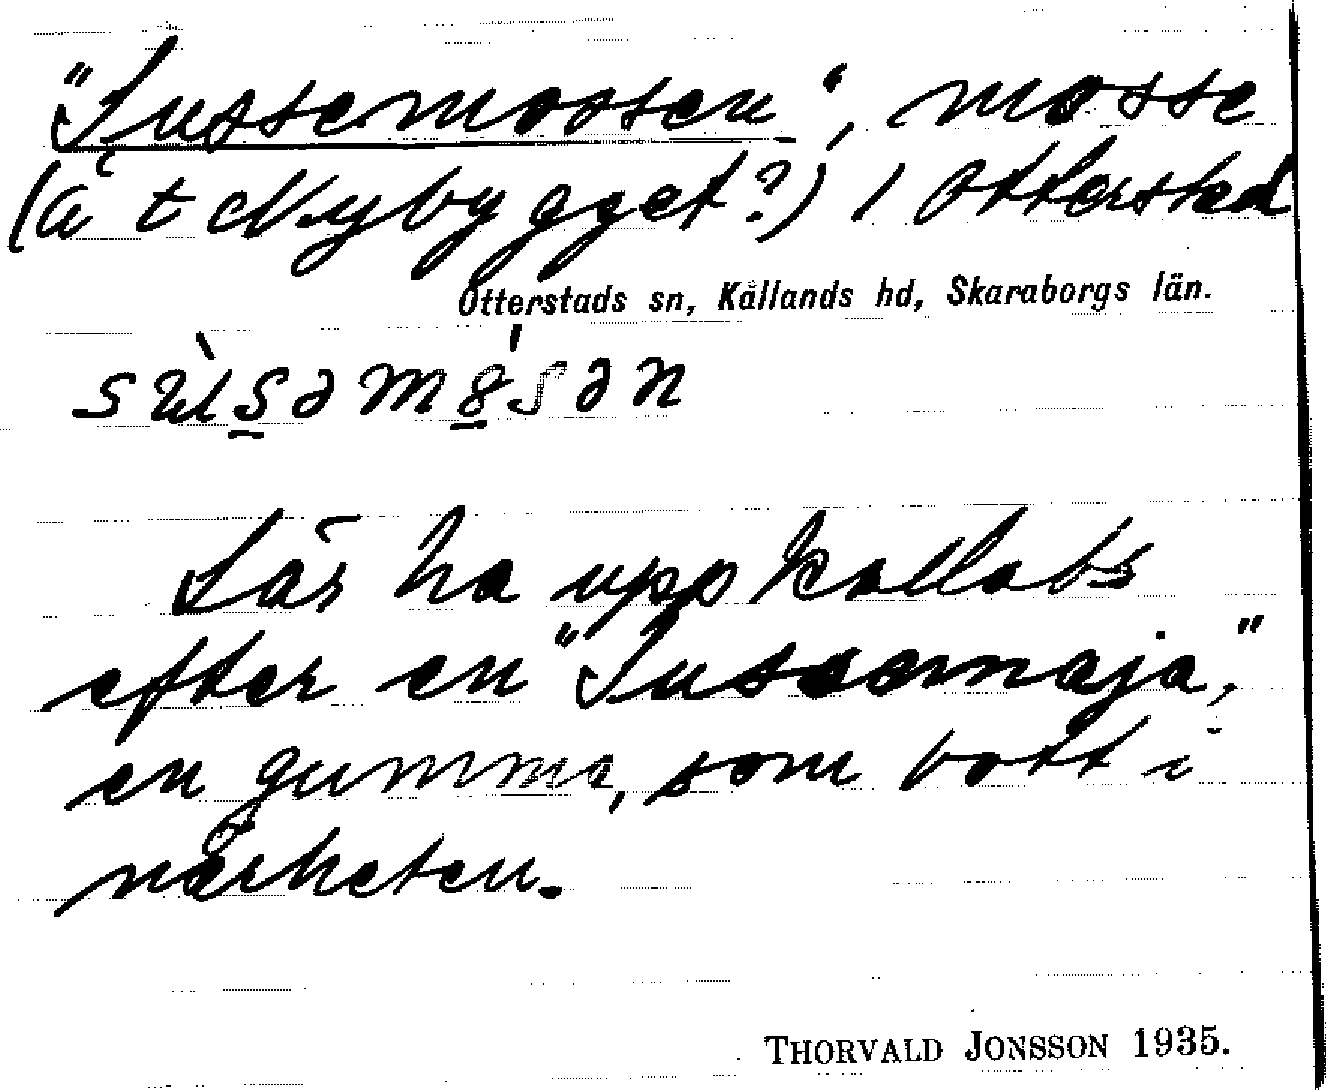 "Sussemossen", mosse
(å t Nybygget?) i Otterstad
Otterstads sn, Kållands hd, Skaraborgs län.
Lär ha uppkallats
efter en "Sussemaja,"
en gumma, som bott i
närheten.
THORVALD JONSSON 1935.